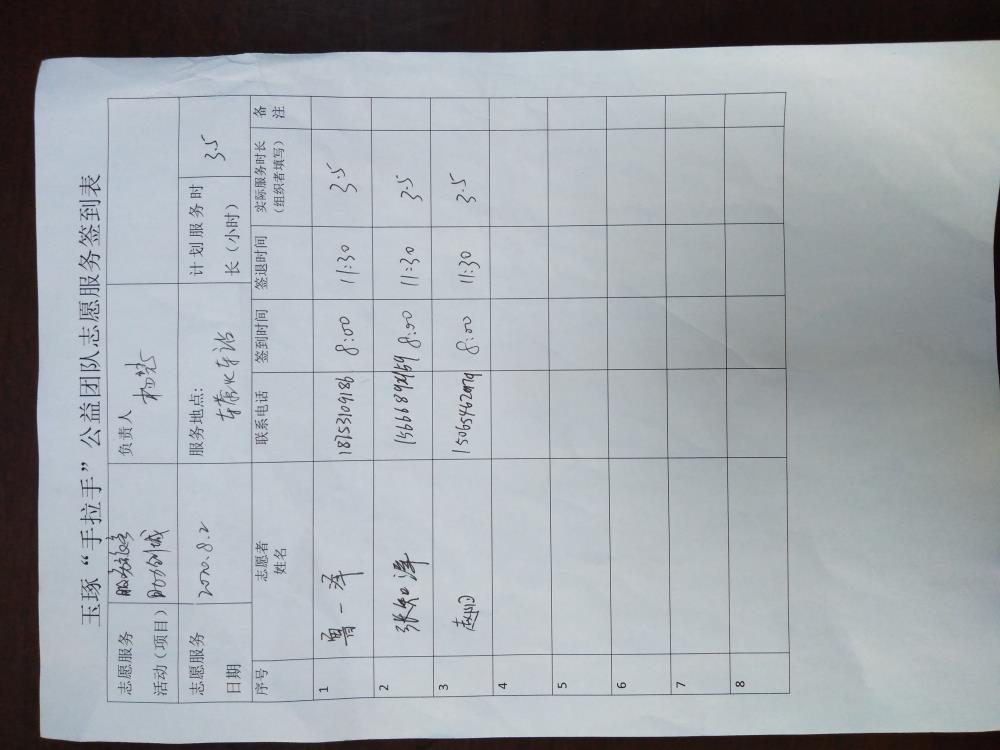 玉琢“手拉手”公益团队志愿服务签到表
志愿服务活动（项目） 服务旅客 助力创城 负责人
志愿服务日期 2020.8.2 服务地点: 东营火车站 计划服务时长（小时） 3.5
序号 志愿者姓名 联系电话 签到时间 签退时间 实际服务时长（组织者填写） 备注
1 鲁一泽 18753109186 8:00 11:30 3.5
2 张知泽 8:00 11:30 3.5
3 8:00 11:30 3.5
4
5
6
7
8